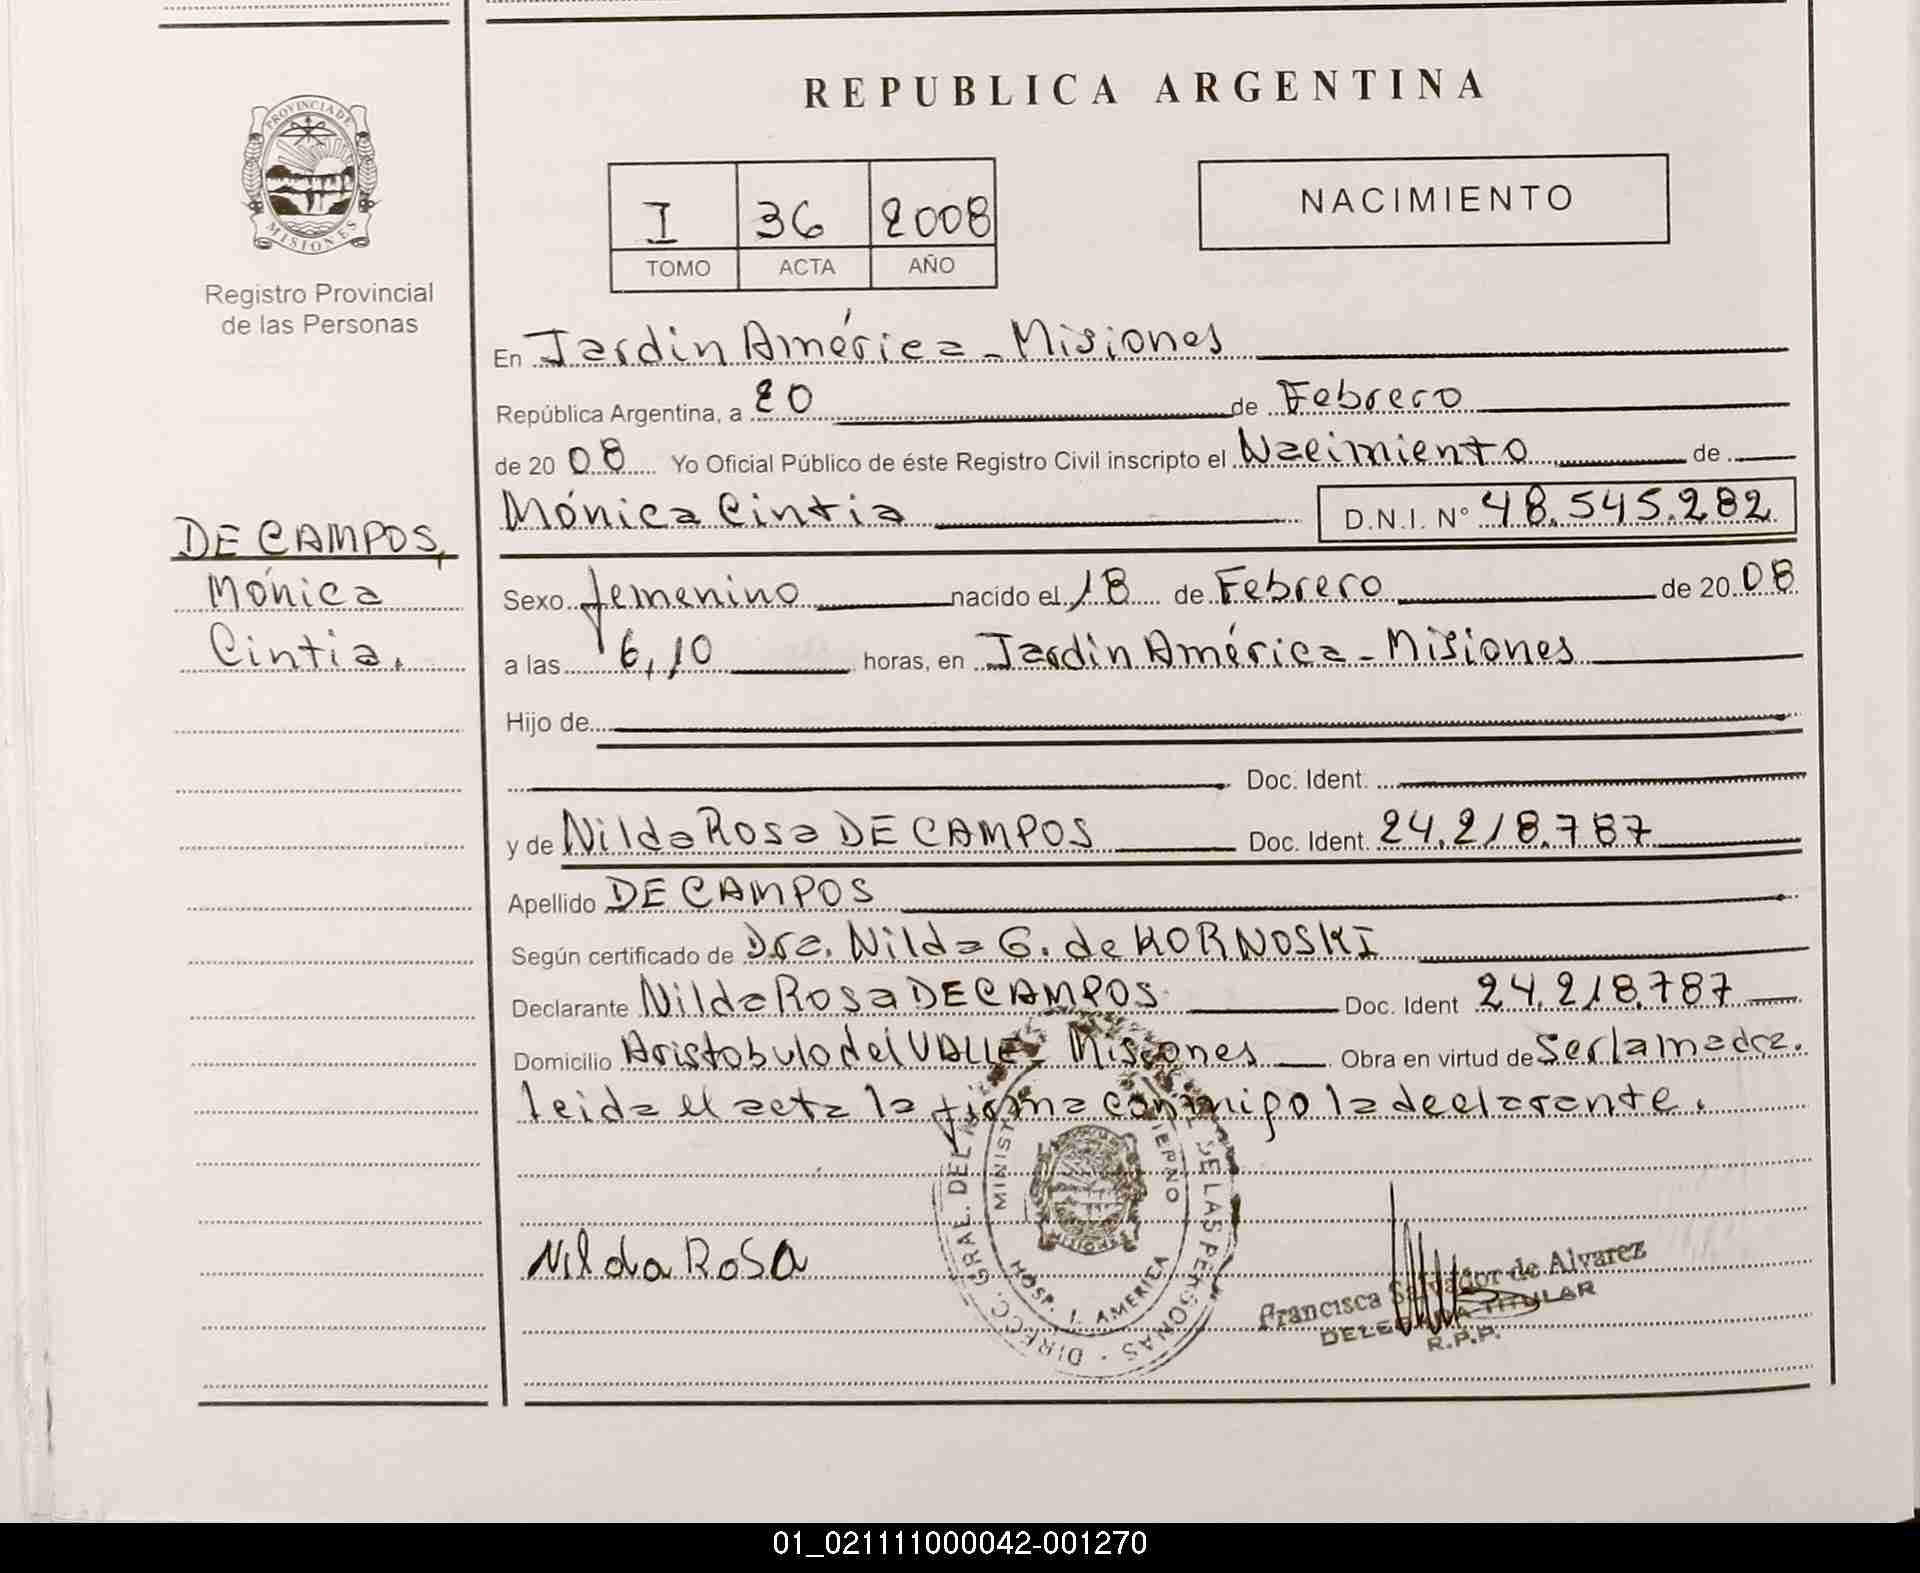 REPUBLICA ARGENTINA
PROVINCIA DE
MISIONES
Registro Provincial
de las Personas
I 36 2008
TOMO ACTA AÑO
NACIMIENTO
En Jardin América - Misiones
República Argentina, a 20 de Febrero
de 20 08 Yo Oficial Público de éste Registro Civil inscripto el Nacimiento de
Mónica Cintia D.N.I. N° 48.545.282
DE CAMPOS,
Mónica
Cintia.
Sexo femenino nacido el 18 de Febrero de 20 08
a las 6,10 horas, en Jardin América - Misiones
Hijo de
Doc. Ident.
y de Nilda Rosa DE CAMPOS Doc. Ident. 24.218.787
Apellido DE CAMPOS
Según certificado de Dra. Nilda G. de KORNOSKI
Declarante Nilda Rosa DE CAMPOS Doc. Ident 24.218.787
Domicilio Aristobulo del VALLE - Misiones Obra en virtud de ser la madre.
leida el acta la firma conmigo la declarante.
DIRECC. GRAL. DEL DE LAS PERSONAS
HOSP. J. AMERICA
Nilda Rosa
Francisca Salvador de Alvarez
DELEGADA TITULAR
R.P.P.
01_021111000042-001270